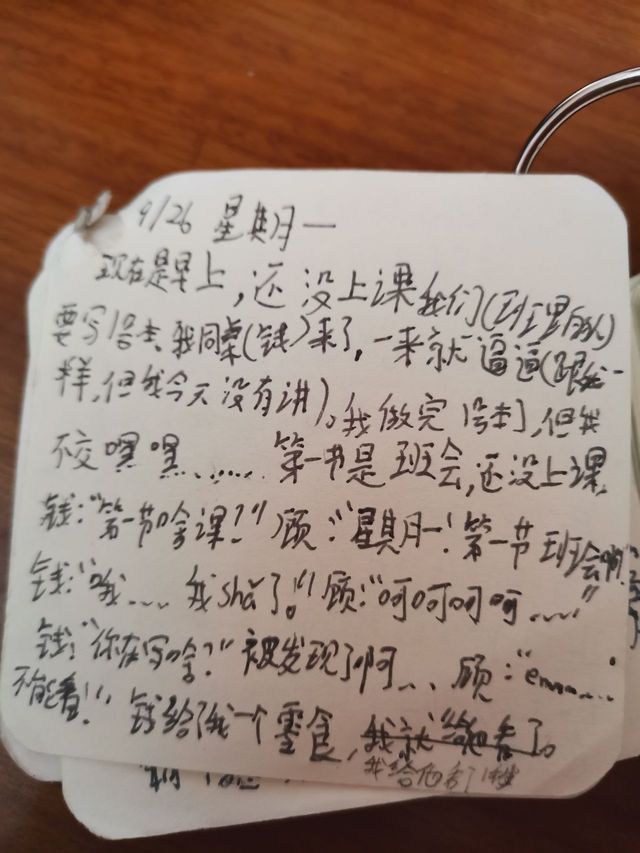 9/26 星期一
现在是早上,还没上课我们(班里所以)
要写1号本,我同桌(钱)来了,一来就逼逼(跟我一
样,但我今天没有讲)。我做完1号本],但我
不交嘿嘿……第一书是班会,还没上课,
钱:“第一节啥课!”顾:“星期一!第一节班会啊!”
钱:“哦....我shǎ了。”顾:“呵呵呵呵....”
钱:“你在写啥?”被发现了啊...顾:“emmm......
不能看!”钱给了我一个零食,我就给她看了。
我给他看了1秒